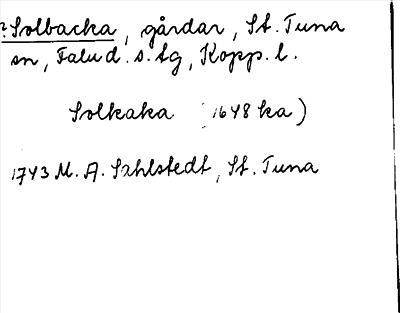 ?Solbacka, gårdar, St. Tuna
sn, Falu d. s. tg, Kopp. l.
Solkaka (1648 ka)
1743 M. A. Sahlstedt, St. Tuna